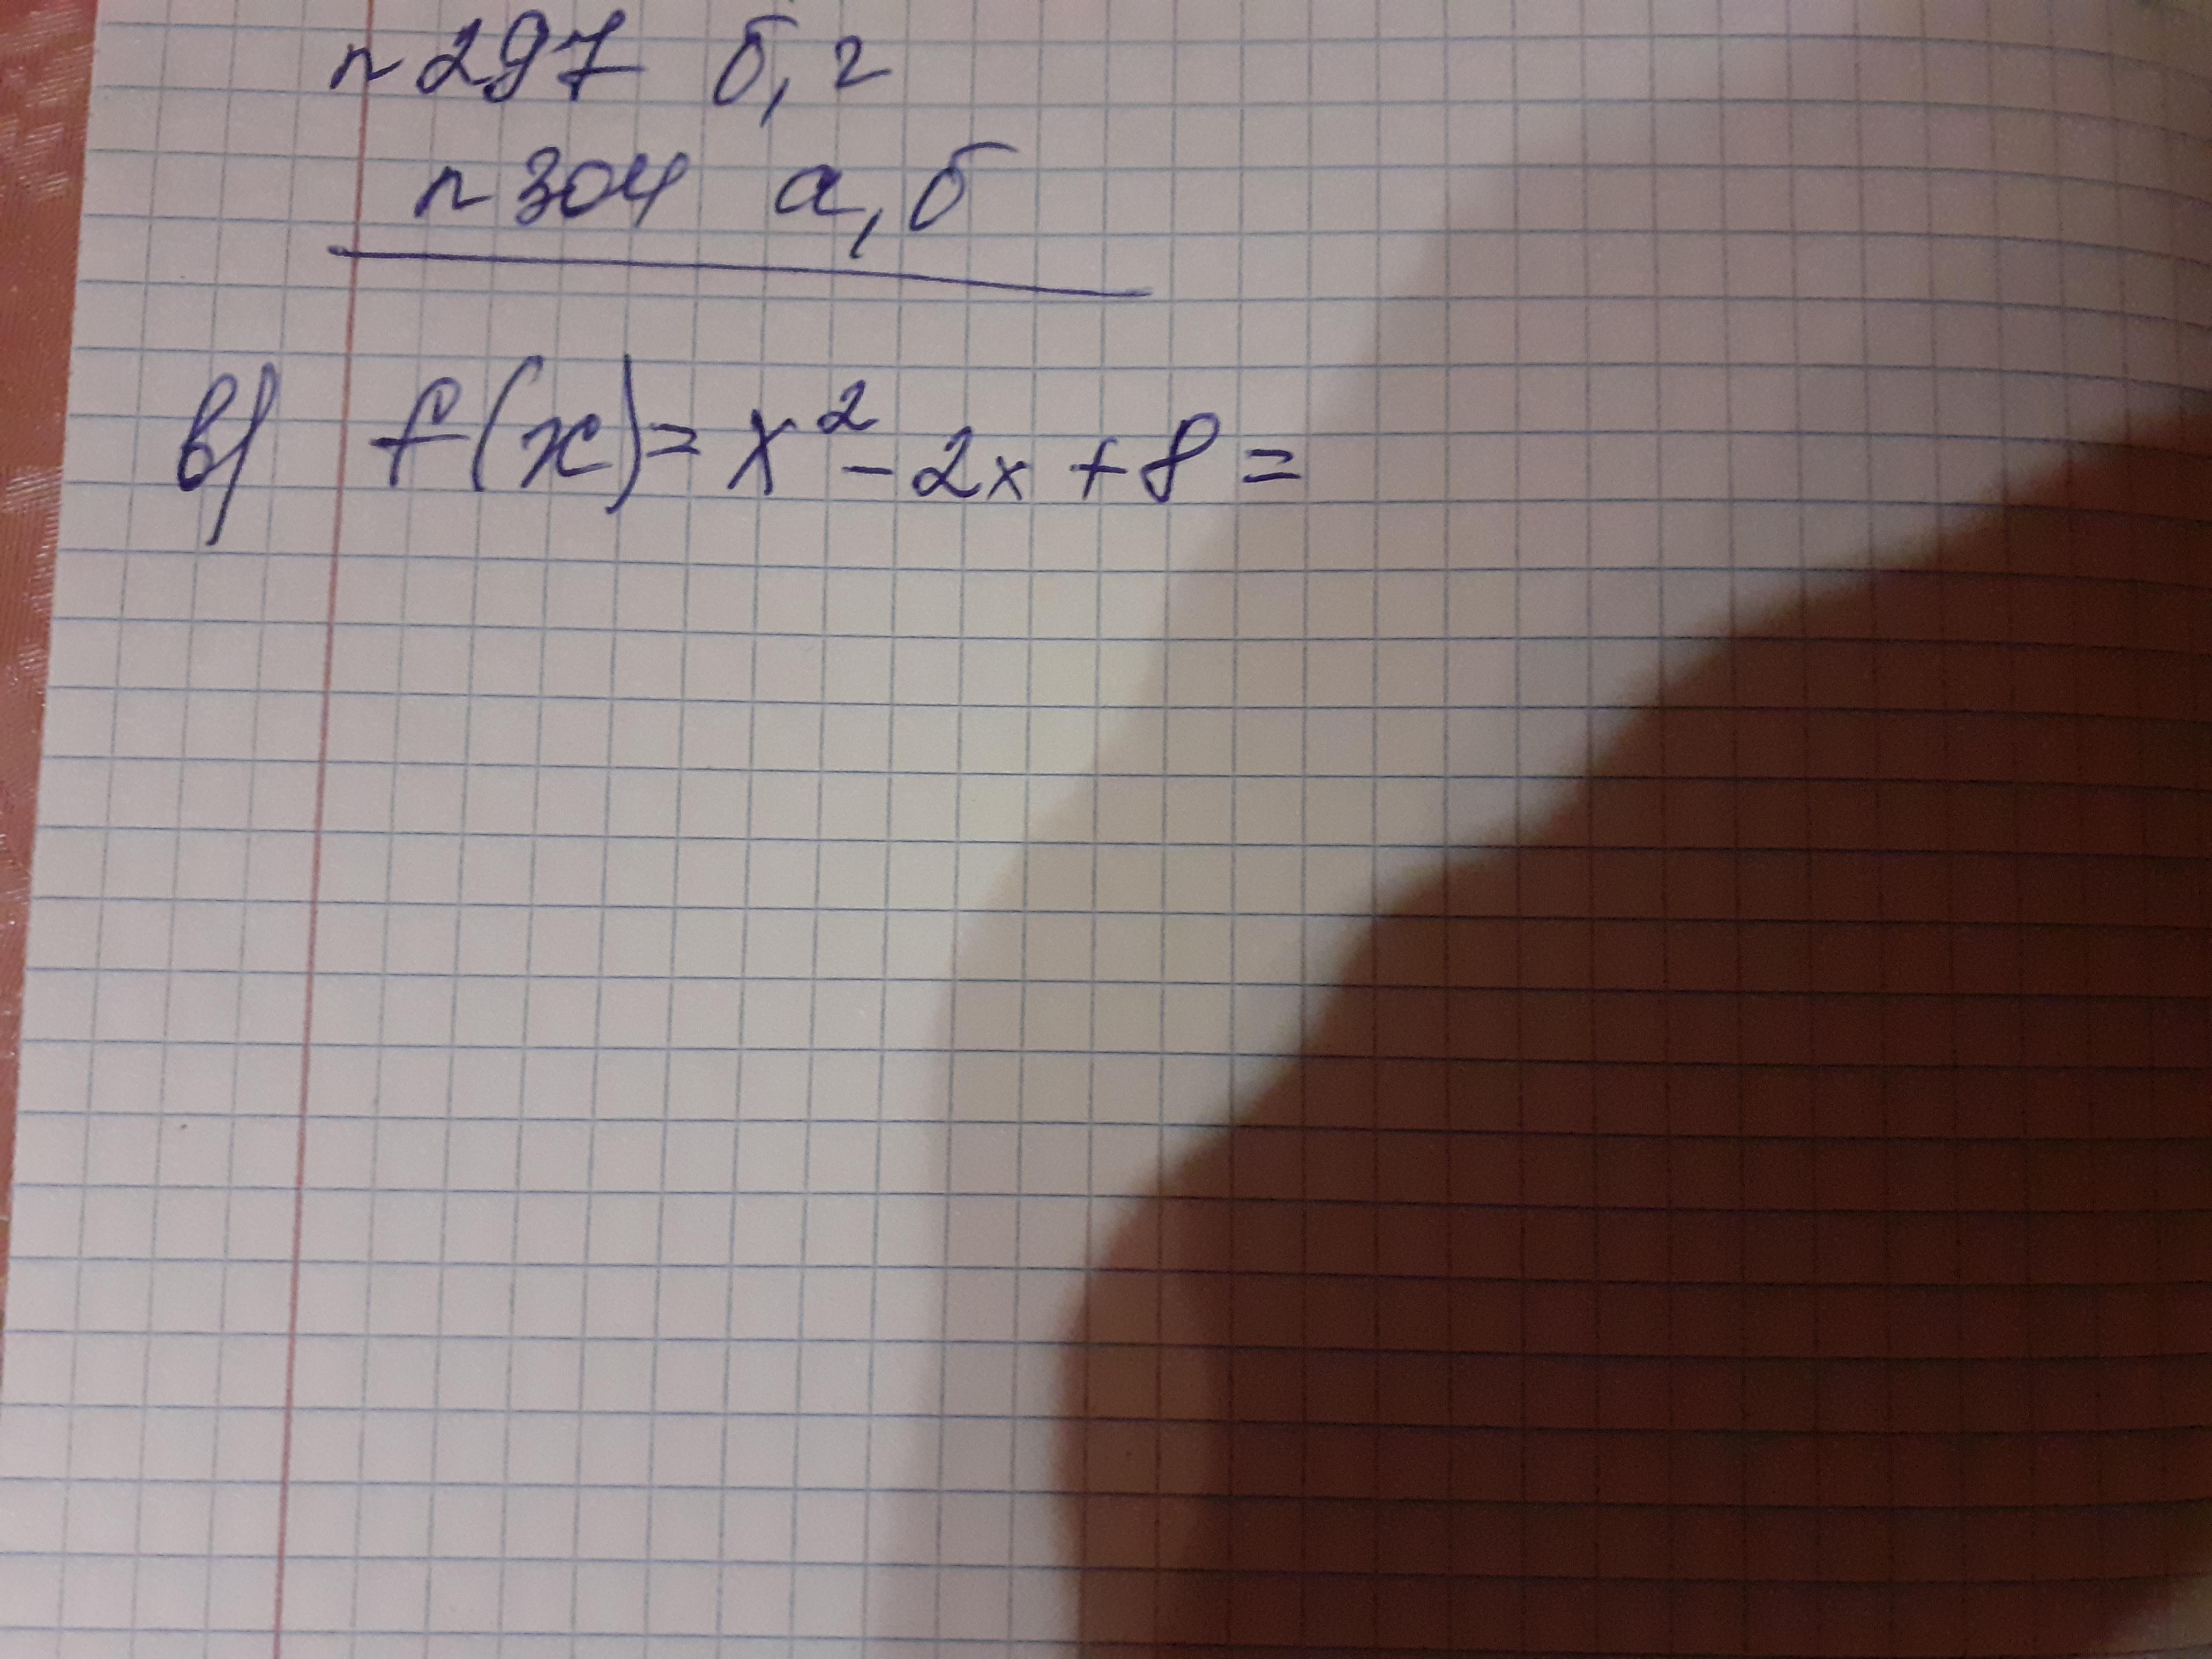 n 297 б, г
n 304 а, б
в) f(x) = x² - 2x + 8 =